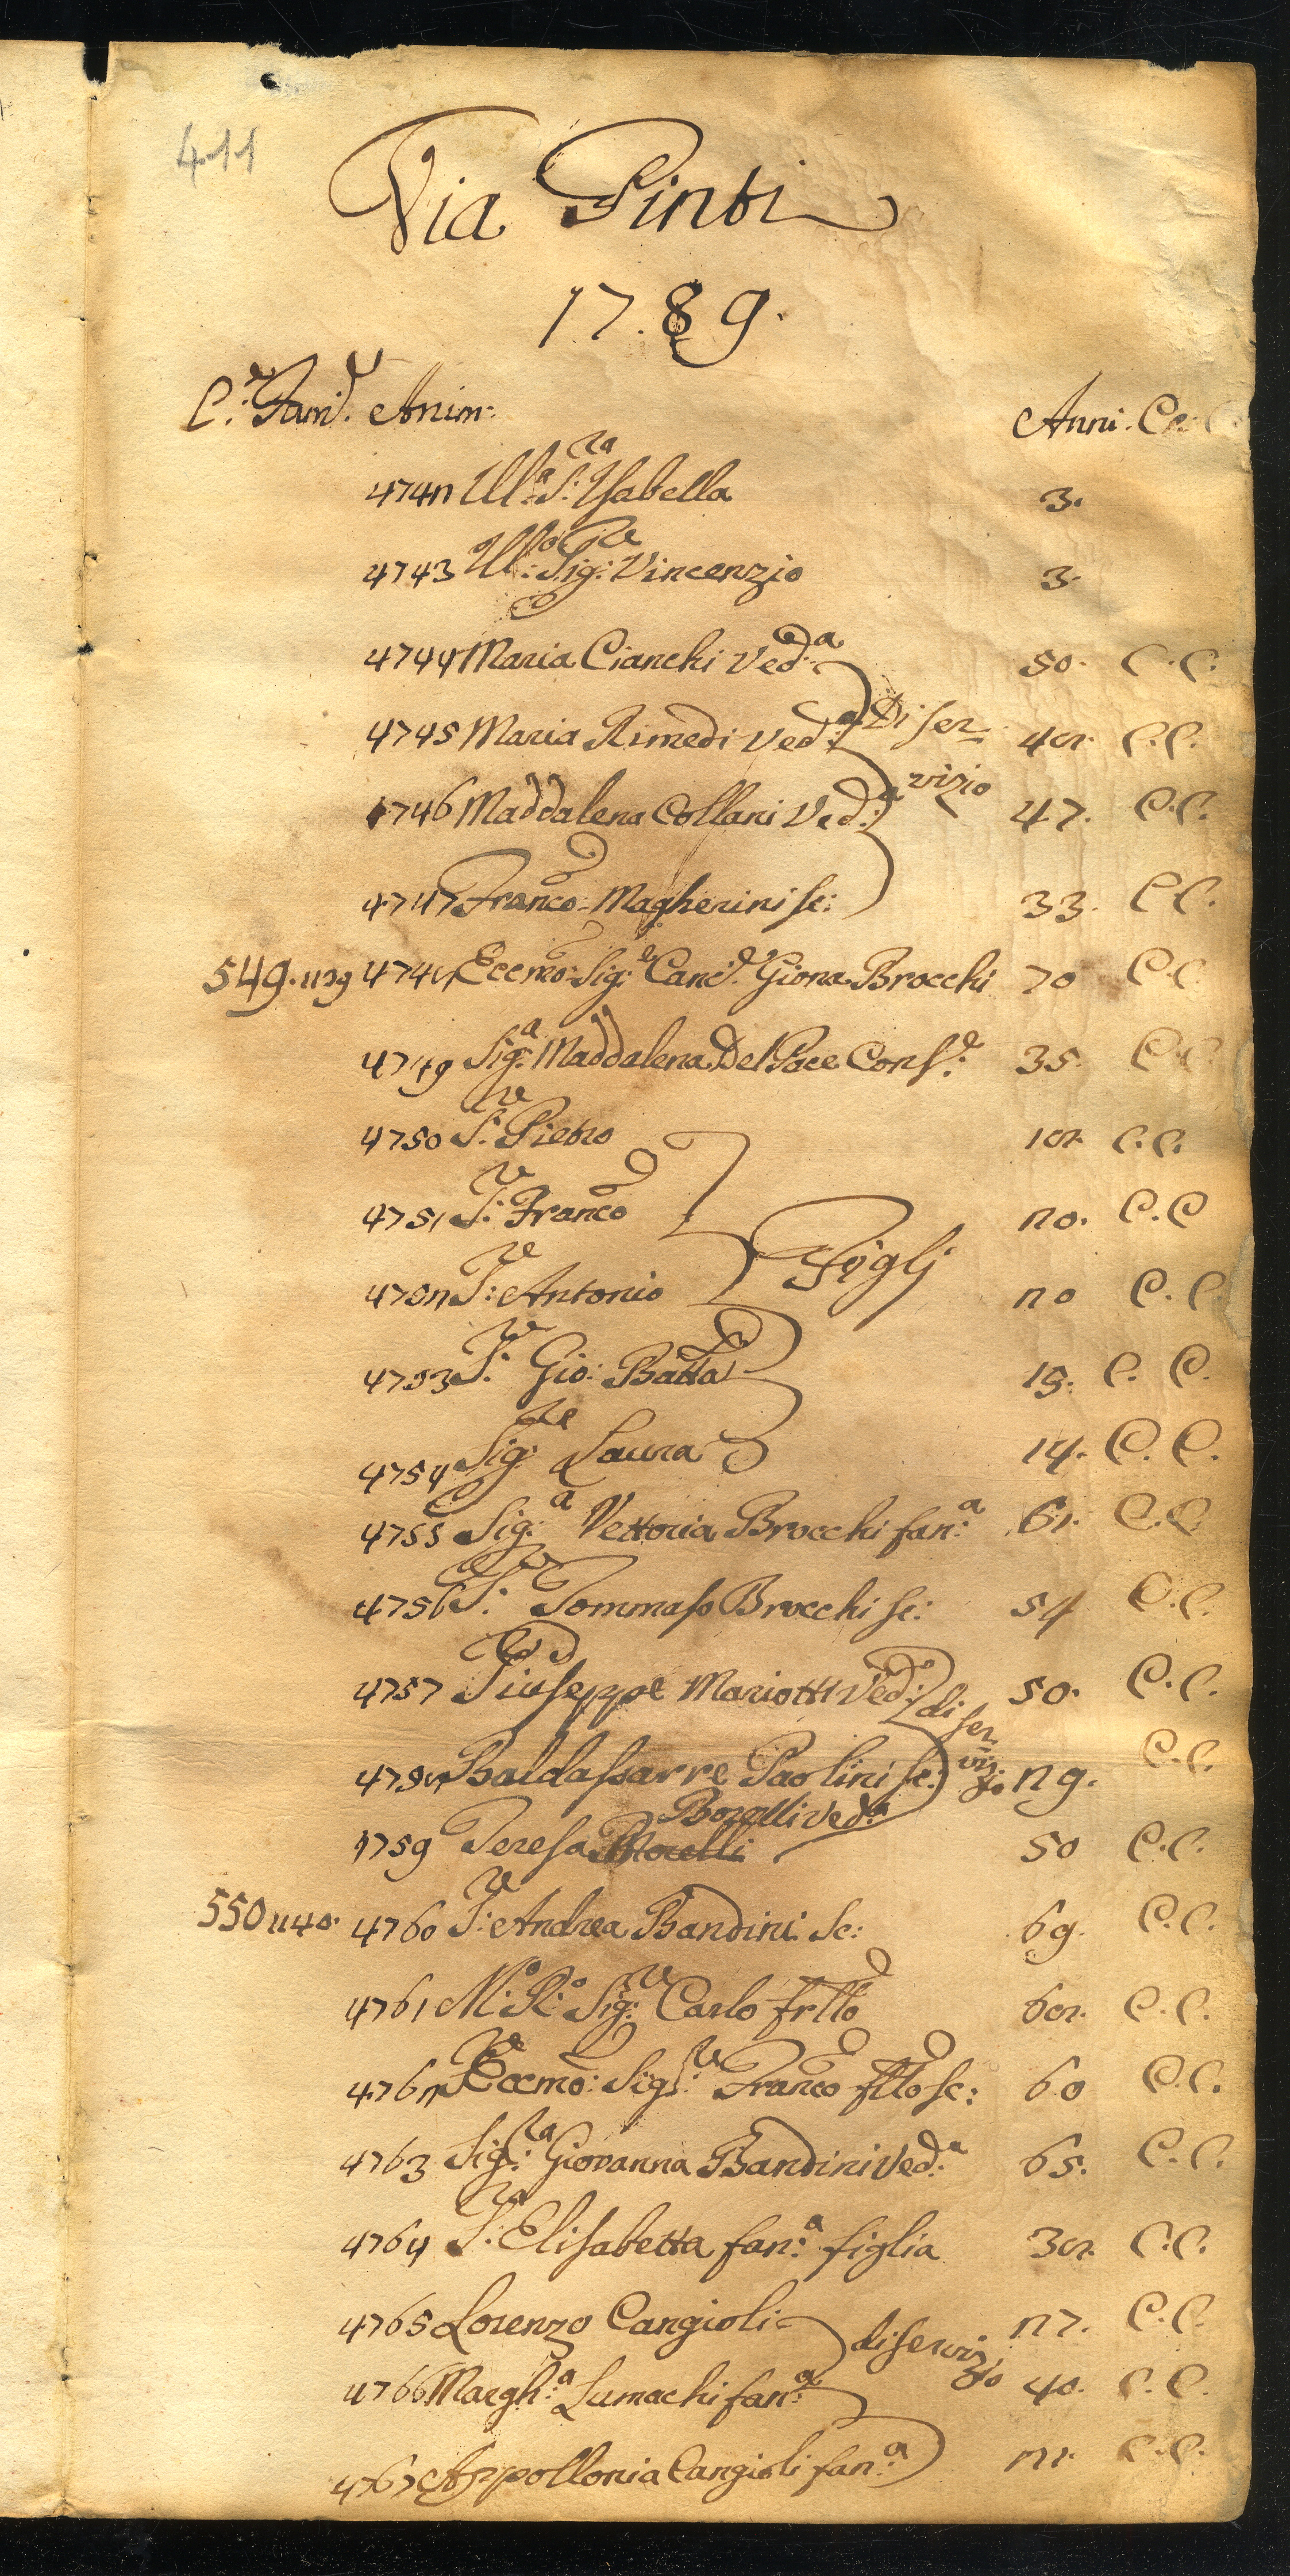 411
Via Pinti
1789.
C.e Fam.e Anim: Anni. C. C
4742 Ill.a S:ra Isabella 3.
4743 Ill:mo Sig:re Vincenzio 3.
4744 Maria Cianchi Ved:a 50. C. C.
4745 Maria Rimedi Ved:a Di ser 48. C. C.
vizio
4746 Maddalena Collani Ved:a 47. C. C.
4747 Franco: Magherini sc: 33. C C.
549. 1139 4748 Eccmo: Sig:e Canc.e Giona Brocchi 70 C. C
4749 Sig:a Maddalena Del Pace Cons:e 35. C C.
4750 S:re Pietro 18. C. C.
4751 S:re Franco 20. C. C
Figlj
4752 S:re Antonio 20 C. C.
4753 S:re Gio: Batta 15. C. C.
4754 Sig:re Laura 14. C. C.
4755 Sig:a Vettoria Brocchi fan:a 61. C. C.
4756 S:re Tommaso Brocchi sc: 54 C. C.
4757 Giuseppe Mariotti Ved:o di ser 50. C. C.
4758 Baldassarre Paolini sc: viz:io 29. C. C.
Borelli Ved:a
4759 Teresa Morelli 50 C. C.
550 1140. 4760 S:re Andrea Bandini Sc: 69. C. C.
4761 M:o R:o Sig:re Carlo frllo 68. C. C.
4762 Eccmo: Sig:re Franco fllo sc: 60 C. C.
4763 Sig:ra Giovanna Bandini Ved:a 65. C. C.
4764 S:ra Elisabetta fan:a figlia 38. C. C.
4765 Lorenzo Cangioli 27. C. C.
di servizio
4766 Margh:a Lumachi fan:a 40. C. C.
4767 Appollonia Cangioli fan:a 21. C. C.